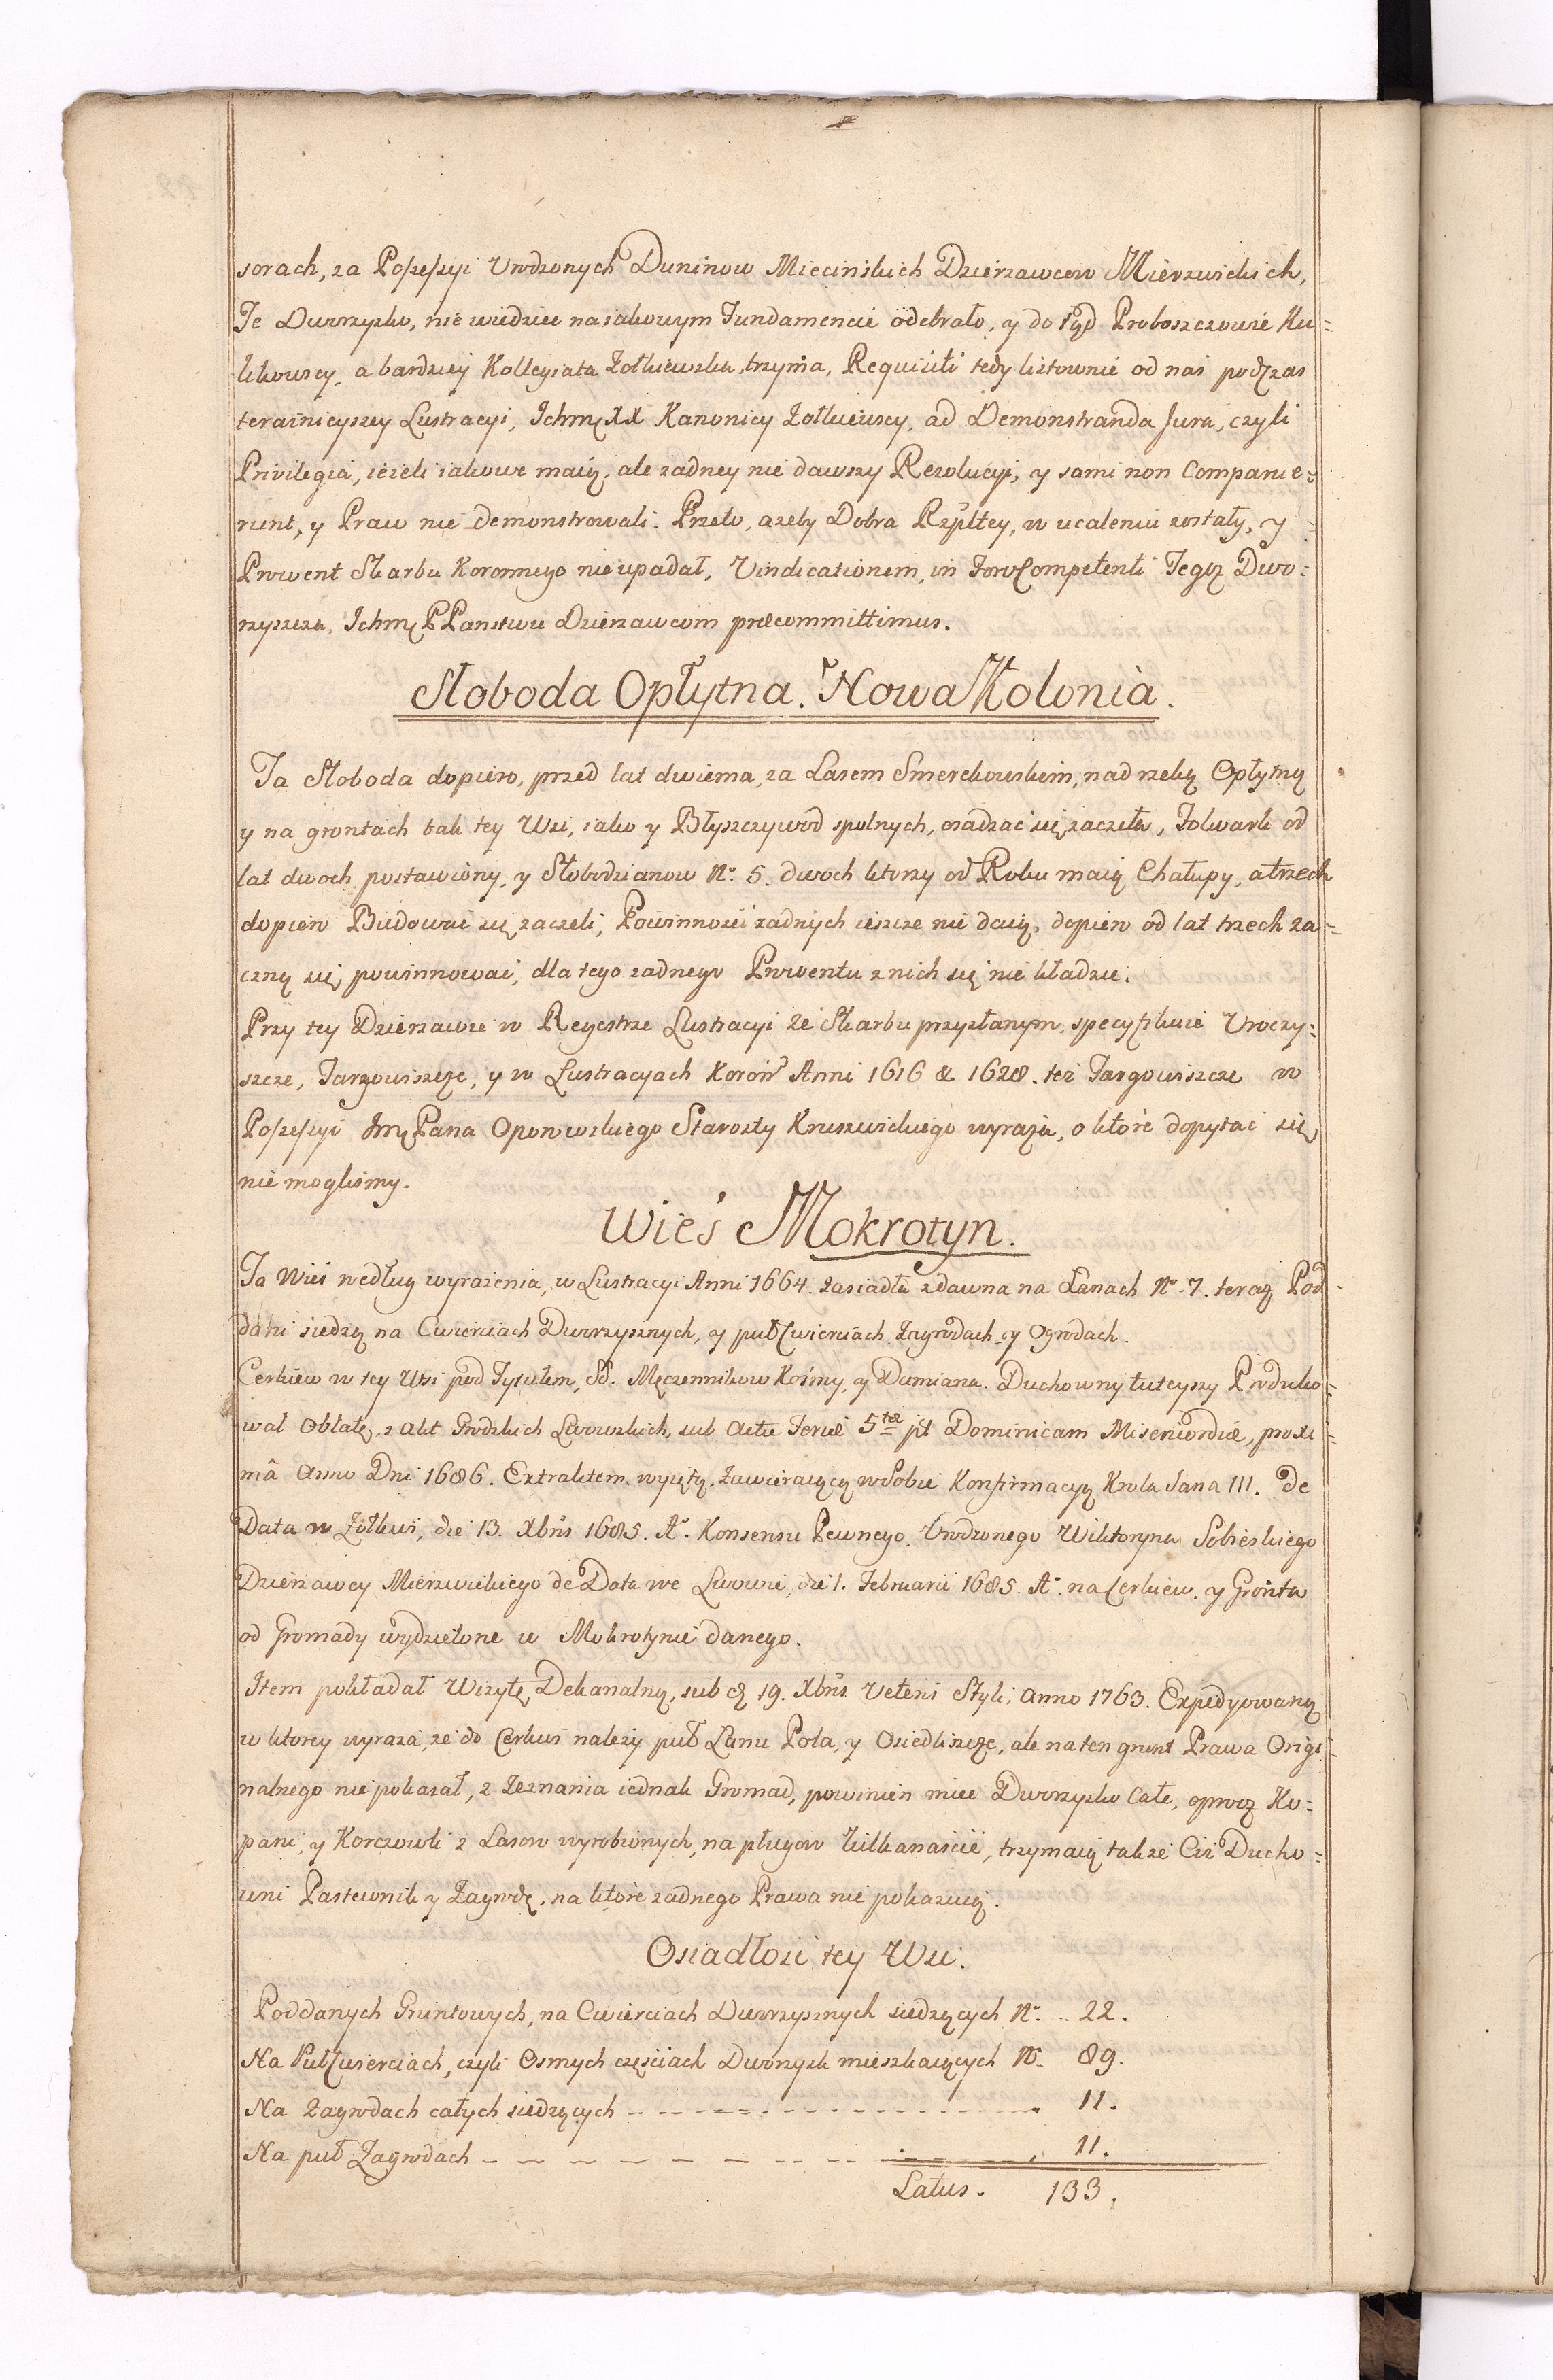 sorach, za Possessyi Urodzonych Duninow Miecinskich Dzierzawcow Mierzwickich,
Te Dworzysko, nie wiedziec na iakowym Fundamencie odebrało, y do tąd Proboszczowie Ku=
likowscy, a bardziey Kollegiata Zołkiewska, trzyma, Requisili tedy listownie od nas podczas
teraznieyszey Lustracyi, Ichmę XX Kanonicy Zołkiewscy, ad Demonstranda Jura, czyli
Privilegia, iezeli iakowe maią, ale zadney nie dawszy Rezolucyi, y sami non Comparue=
runt, y Praw nie demonstrowali. Przeto, azeby Dobra Rzpltey, w ucaleniu zostały, y
Prowent Skarbu Koronnego nie upadał, Vindicationem, in Foro Competenti Tegoz Dwo=
rzyszcza, Ichmę PPanstwu Dzierzawcom præcommittimus.
Słoboda Opłytna. Nowa Kolonia.
Ta Słoboda dopiero, przed lat dwiema, za Lasem Smerekowskim, nad rzeką Opłytną
y na grontach tak tey Wsi, iako y Błyszczywod spolnych, osadzać się zaczeła, Folwark od
lat dwoch postawiony, y Słobodzianow No. 5. dwoch ktorzy od Roku maią Chałupy, a trzech
dopiero Budować się zaczeli, Powinnosci zadnych ieszcze nie daią, dopiero od lat trzech za=
czną się powinnować, dla tego zadnego Prowentu z nich się nie kładzie.
Przy tey Dzierzawie w Regestrze Lustracyi ze Skarbu przysłanym, specyfikuie Uroczy=
szcze, Targowiszcze, y w Lustracyach Koron Anni 1616 & 1628. tez Targowiszcze w
Possessyi Jmę Pana Oporowskiego Starosty Kruszwickiego wyraza, o ktore dopytać się
nie moglismy.
Wieś Mokrotyn.
Ta Wieś według wyrazenia, w Lustracyi Anni 1664. zasiadła zdawna na Łanach No. 7. teraz Pod
dani siedzą na Cwierciach Dworzysznych, y puł Cwierciach Zagrodach y Ogrodach.
Cerkiew w tey Wsi pod Tytułem, SS. Męczennikow Kośmy, y Damiana. Duchowny tuteyszy Produko=
wał Oblatę, z Akt Grodzkich Lwowskich, sub Actu Feriæ 5tæ pt Dominicam Misericordiæ, proxi=
mâ Anno Dni 1686. Extraktem wyiętą, Zawieraiącą w Sobie Konfirmacyą Krola Jana III. de
Data w Zołkwi, die 13. Xbris 1685. Ao. Konsensu Pewnego, Urodzonego Wiktoryna Sobieskiego
Dzierzawcy Mierzwickiego de Data we Lwowie, die 1. Februarii 1685. Ao. na Cerkiew, y Gronta
od Gromady wydzielone w Mokrotynie danego.
Item pokładał Wizytę Dekanalną, sub d 19. Xbris Veteris Styli, Anno 1763. Expedyowaną
w ktorey wyraza, ze do Cerkwi nalezy puł Łanu Pola, y Osiedliszcze, ale na ten grunt Prawa Origi=
nalnego nie pokazał, z Zeznania iednak Gromad, powinien miec Dworzysko Całe, oprocz Ko=
pani, y Korczowli z Lasow wyrobionych, na pługow kilkanaście, trzymaią takze Ciz Ducho=
wni Pastewnik y Zagrodę, na ktore zadnego Prawa nie pokazuią.
Osiadłości tey Wsi.
Poddanych Gruntowych, na Cwierciach Dworzysznych siedzących No. .. 22.
Na Puł Cwierciach, czyli Osmych częściach Dworzysk mieszkaiących No. 89.
Na Zagrodach całych siedzących - - - - - - 11.
Na puł Zagrodach - - - - - - 11.
Latus. 133.